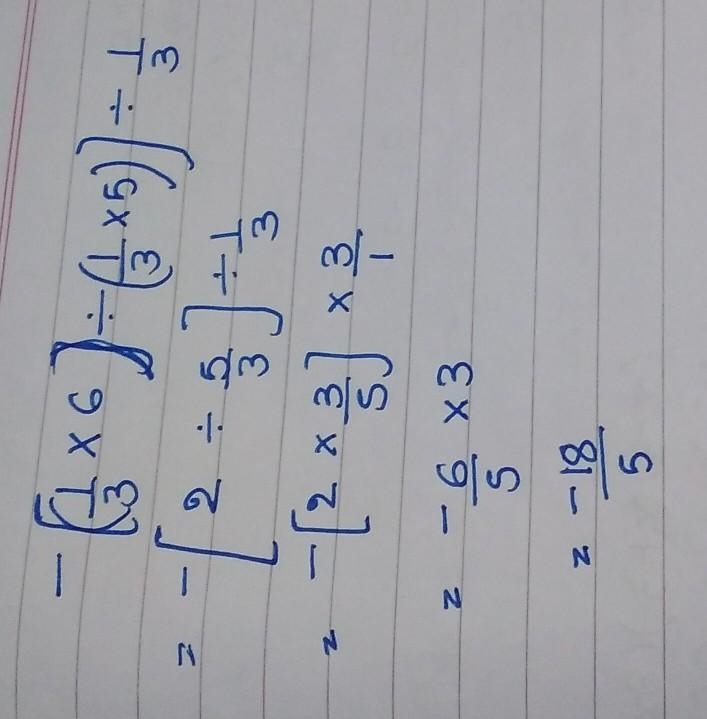 -[(1/3 × 6) ÷ (1/3 × 5)] ÷ 1/3
= -[2 ÷ 5/3] ÷ 1/3
= -[2 × 3/5] × 3/1
= -6/5 × 3
= -18/5